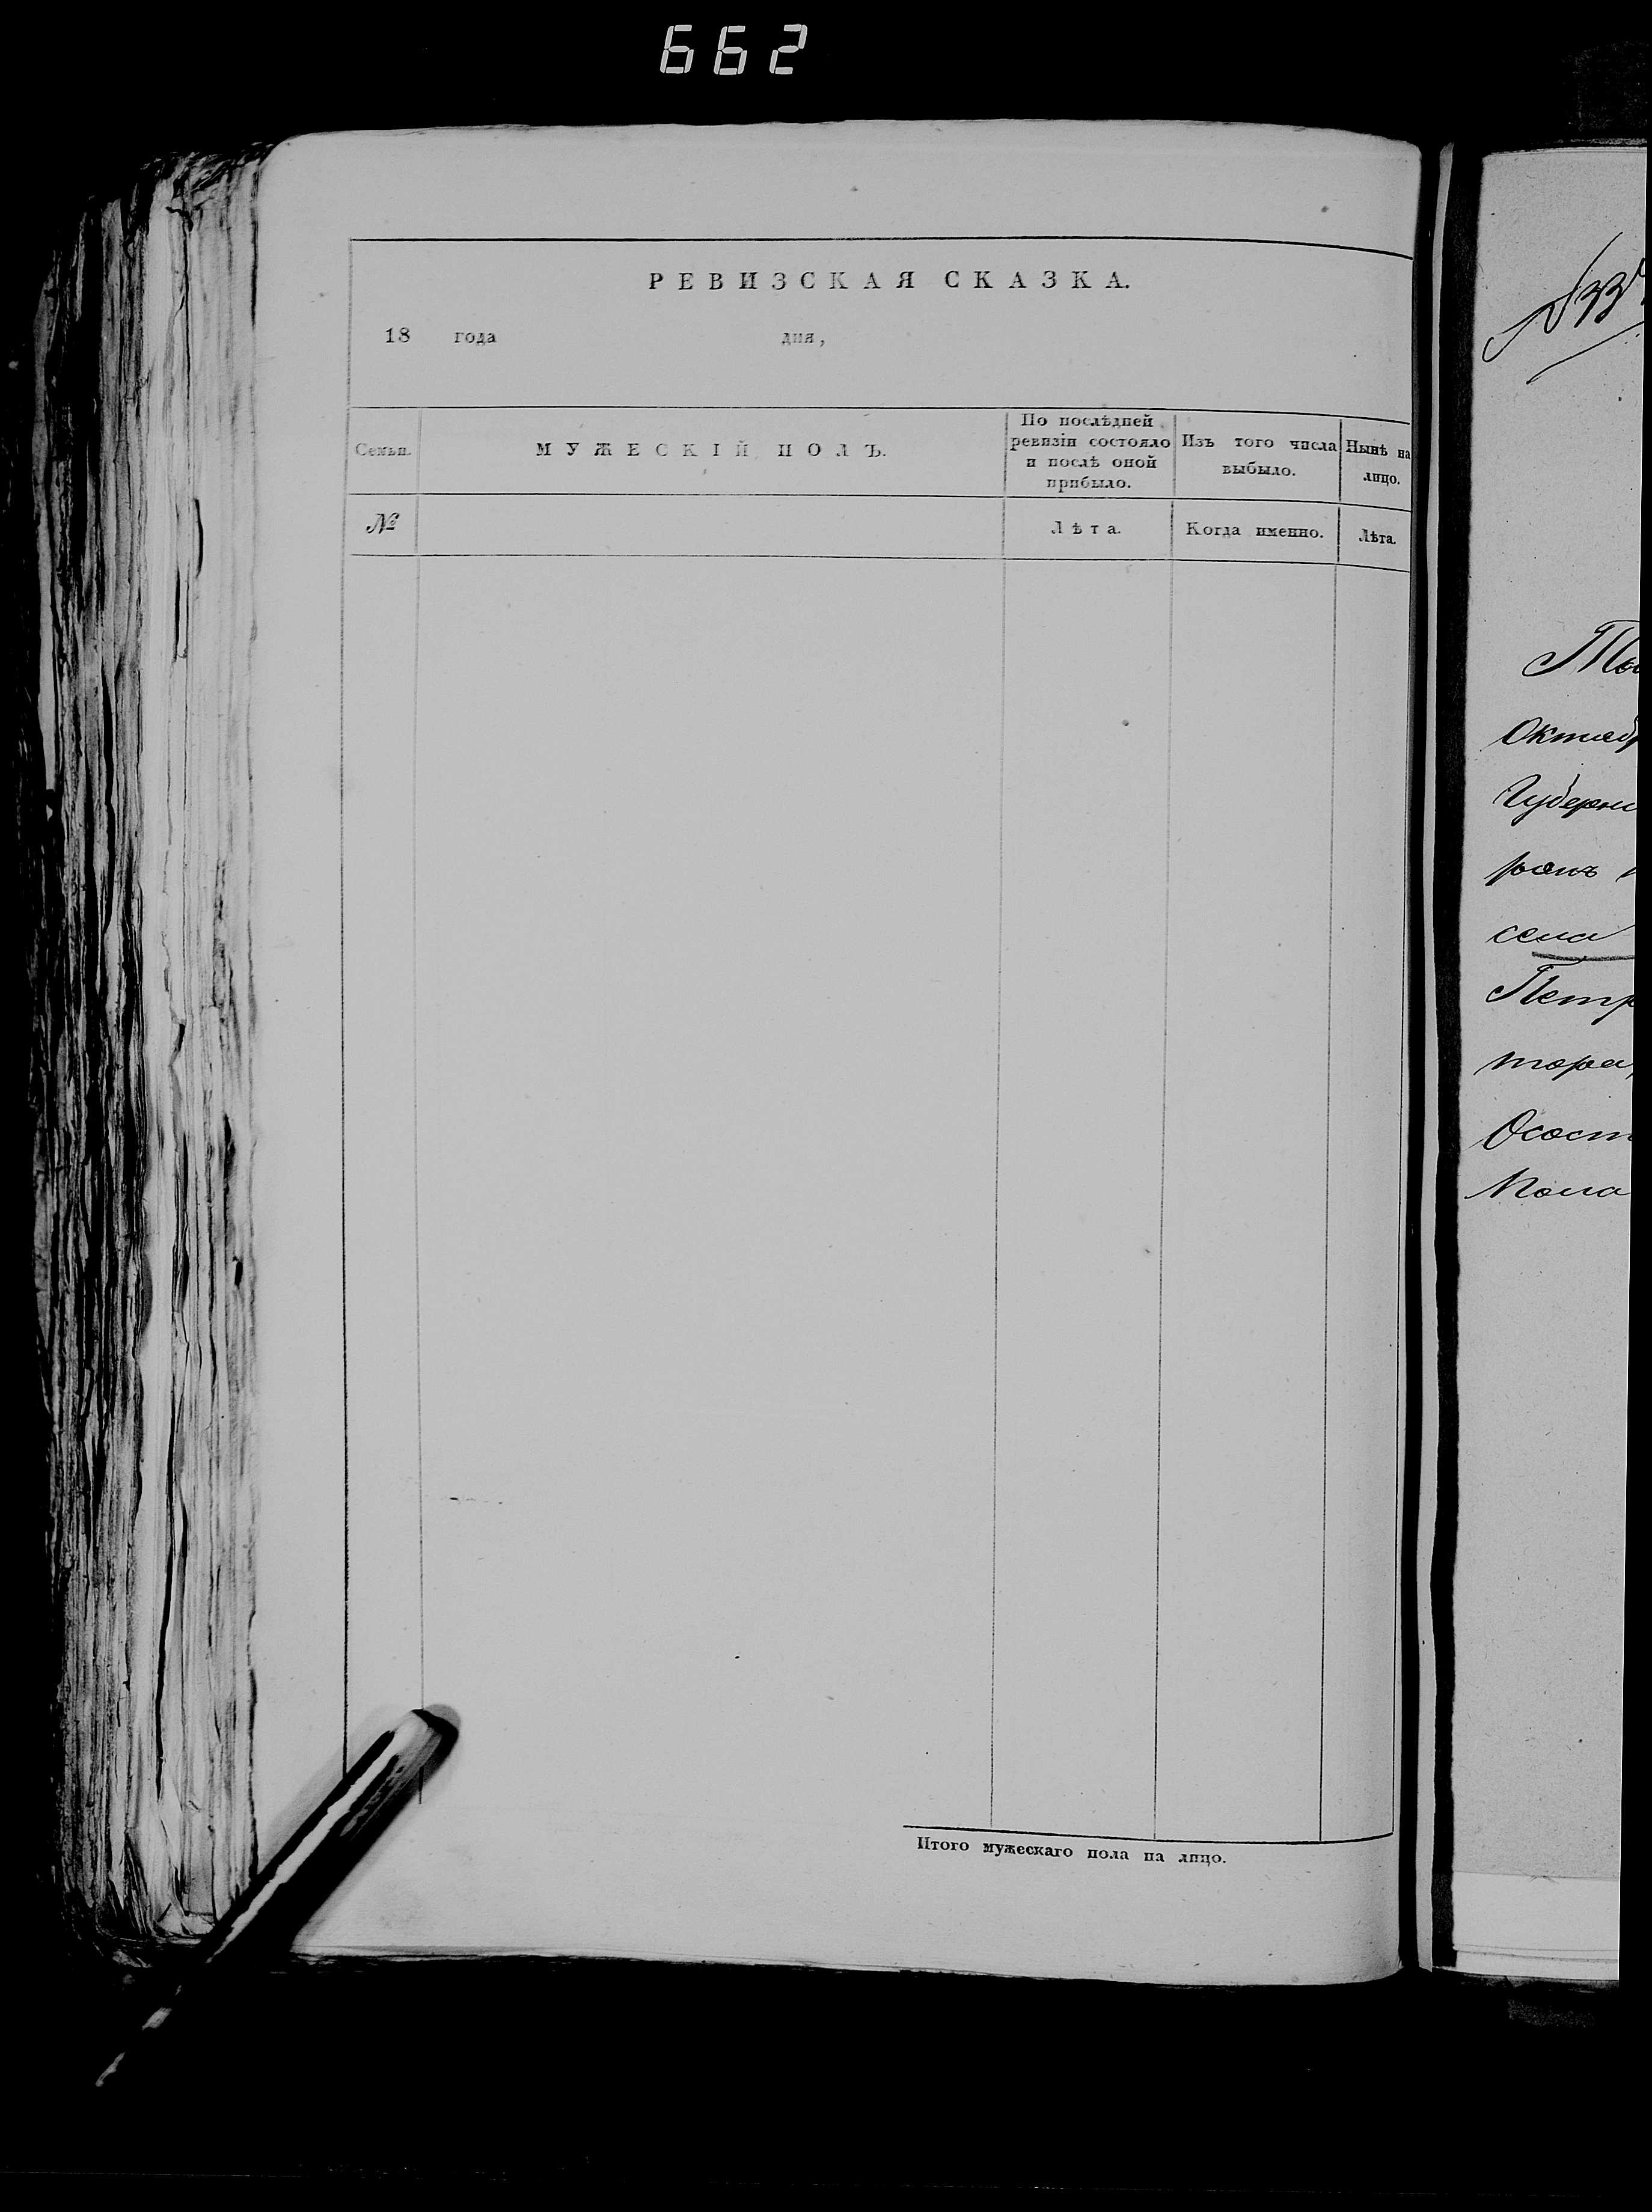 662
РЕВИЗСКАЯ СКАЗКА.
18 года дня,
Семьи.
МУЖЕСКІЙ ПОЛЪ.
По послѣдней
ревизіи состояло
и послѣ оной
прибыло.
Изъ того числа
выбыло.
Нынѣ на
лицо.
№
Лѣта.
Когда именно.
Лѣта.
Итого мужескаго пола на лицо.
Октяб
Губерни
села
Петр